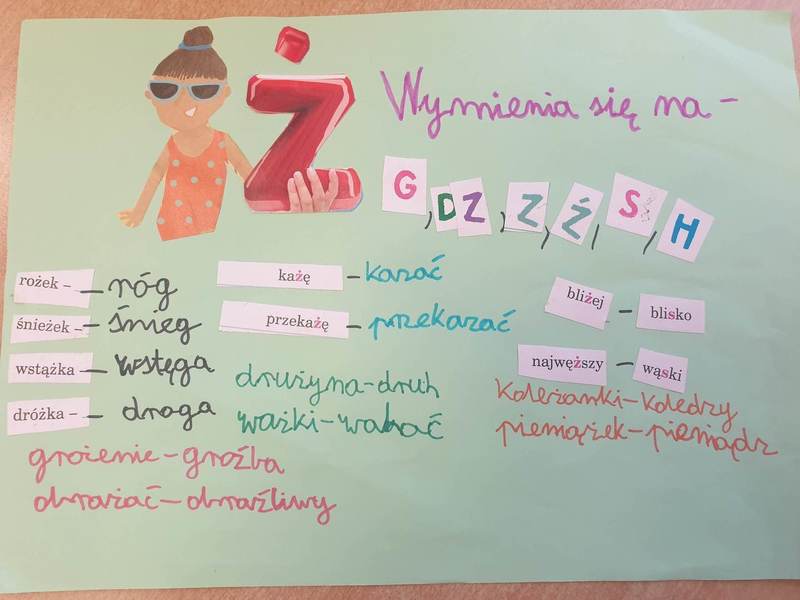 Ż
Wymienia się na -
G, DZ, Z, Ź, S, H
rożek - — róg
śnieżek - — śnieg
wstążka — wstęga
dróżka - — droga
każę — kazać
przekażę — przekazać
bliżej — blisko
najwęższy — wąski
drużyna - druh
ważki - wahać
koleżanki - koledzy
pieniążek - pieniądz
grożenie - groźba
obrażać - obraźliwy